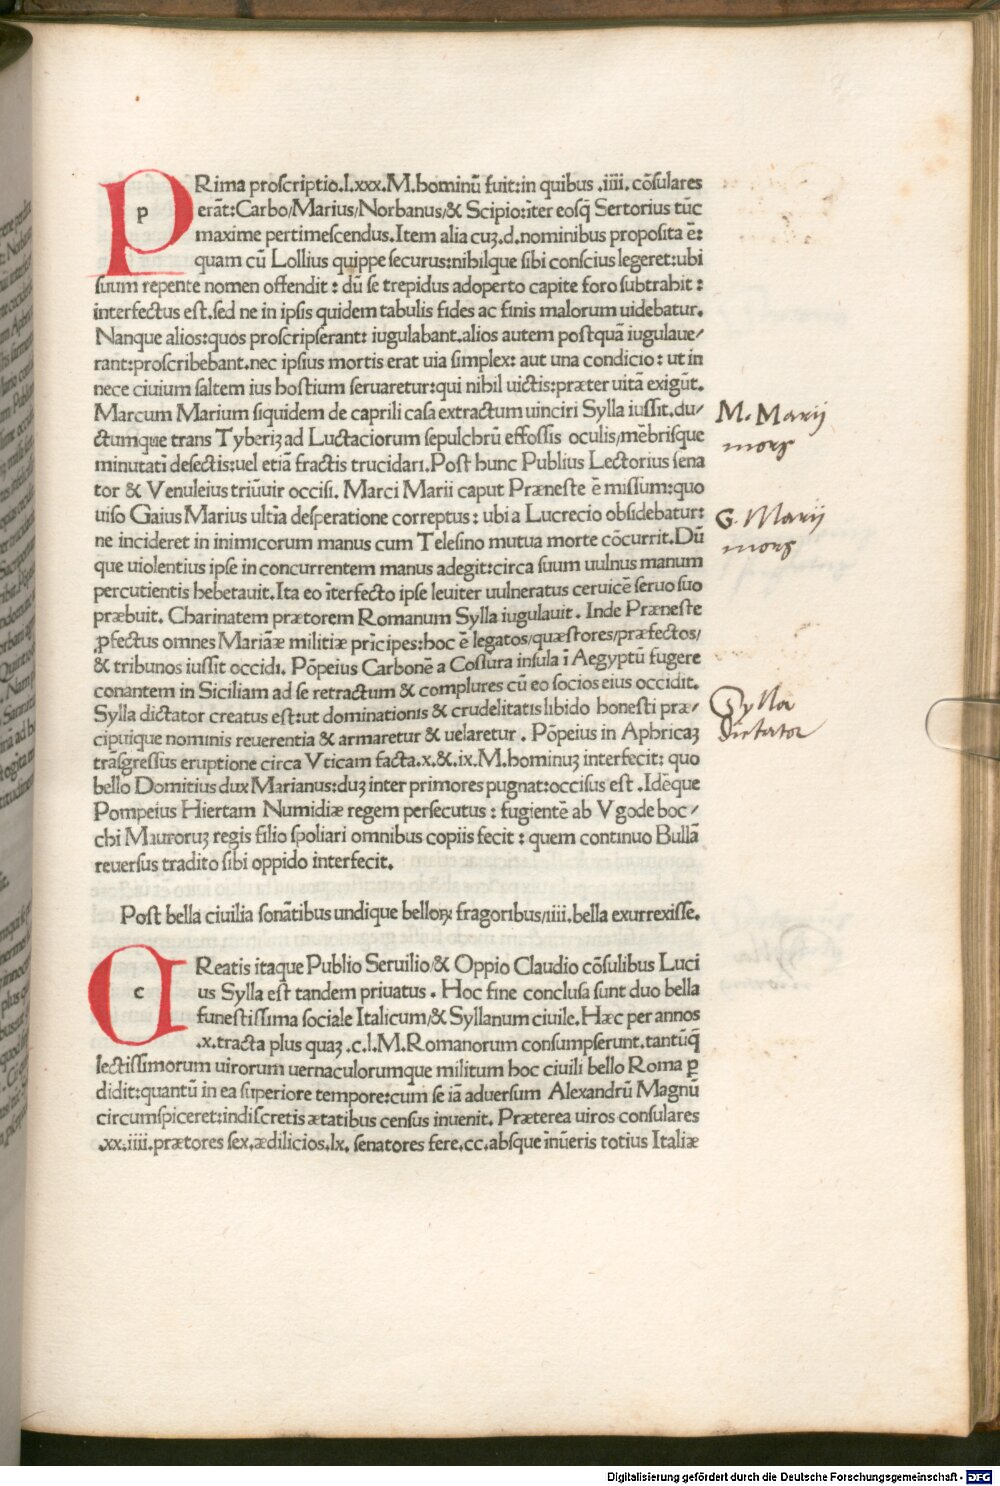 PRima proscriptio.l.xxx.M.hominū fuit:in quibus .iiii. cōsulares
erāt:Carbo/Marius/Norbanus/& Scipio:īter eosq̄ Sertorius tūc
maxime pertimescendus.Item alia cuꝫ.d.nominibus proposita ē:
quam cū Lollius quippe securus:nihilque sibi conscius legeret:ubi
suum repente nomen offendit : dū se trepidus adoperto capite foro subtrahit :
interfectus est.sed ne in ipsis quidem tabulis fides ac finis malorum uidebatur.
Nanque alios:quos proscripserant: iugulabant.alios autem postquā iugulaue/
rant:proscribebant.nec ipsius mortis erat uia simplex: aut una condicio : ut in
nece ciuium saltem ius hostium seruaretur:qui nihil uictis:præter uitā exigūt.
Marcum Marium siquidem de caprili casa extractum uinciri Sylla iussit.du/
ctumque trans Tyberiꝫ ad Luctaciorum sepulchrū effossis oculis/mēbrisque
minutati desectis:uel etiā fractis trucidari.Post hunc Publius Lectorius sena
tor & Venuleius triūuir occisi. Marci Marii caput Præneste ē missum:quo
uiso Gaius Marius ultīa desperatione correptus : ubi a Lucrecio obsidebatur:
ne incideret in inimicorum manus cum Telesino mutua morte cōcurrit.Dū
que uiolentius ipse in concurrentem manus adegit:circa suum uulnus manum
percutientis hebetauit.Ita eo īterfecto ipse leuiter uulneratus ceruicē seruo suo
præbuit. Charinatem prætorem Romanum Sylla iugulauit . Inde Præneste
ꝓfectus omnes Mariāæ militiæ prīcipes:hoc ē legatos/quæstores/præfectos/
& tribunos iussit occidi. Pōpeius Carbonē a Cossura insula ī Aegyptū fugere
conantem in Siciliam ad se retractum & complures cū eo socios eius occidit.
Sylla dictator creatus est:ut dominationis & crudelitatis libido honesti præ/
cipuique nominis reuerentia & armaretur & uelaretur . Pōpeius in Aphricaꝫ
trāsgressus eruptione circa Vticam facta.x.& .ix.M.hominuꝫ interfecit: quo
bello Domitius dux Marianus:duꝫ inter primores pugnat:occisus est .Idēque
Pompeius Hiertam Numidiæ regem persecutus : fugientē ab Vgode boc/
chi Mauroruꝫ regis filio spoliari omnibus copiis fecit : quem continuo Bullā
reuersus tradito sibi oppido interfecit.
Post bella ciuilia sonātibus undique belloꝝ fragoribus/iiii.bella exurrexisse.
CReatis itaque Publio Seruilio/& Oppio Claudio cōsulibus Luci
us Sylla est tandem priuatus . Hoc fine conclusa sunt duo bella
funestissima sociale Italicum/& Syllanum ciuile.Hæc per annos
.x.tracta plus quaꝫ .c.l.M.Romanorum consumpserunt.tantūq̄
lectissimorum uirorum uernaculorumque militum hoc ciuili bello Roma ꝑ
didit:quantū in ea superiore tempore:cum se iā aduersum Alexandrū Magnū
circumspiceret:indiscretis ætatibus census inuenit. Præterea uiros consulares
.xx.iiii.prætores sex.ædilicios.lx. senatores fere.cc.absque īnūeris totius Italiæ
M. Marij
mors
G. Marij
mors
Sylla
Dictator
Digitalisierung gefördert durch die Deutsche Forschungsgemeinschaft - DFG